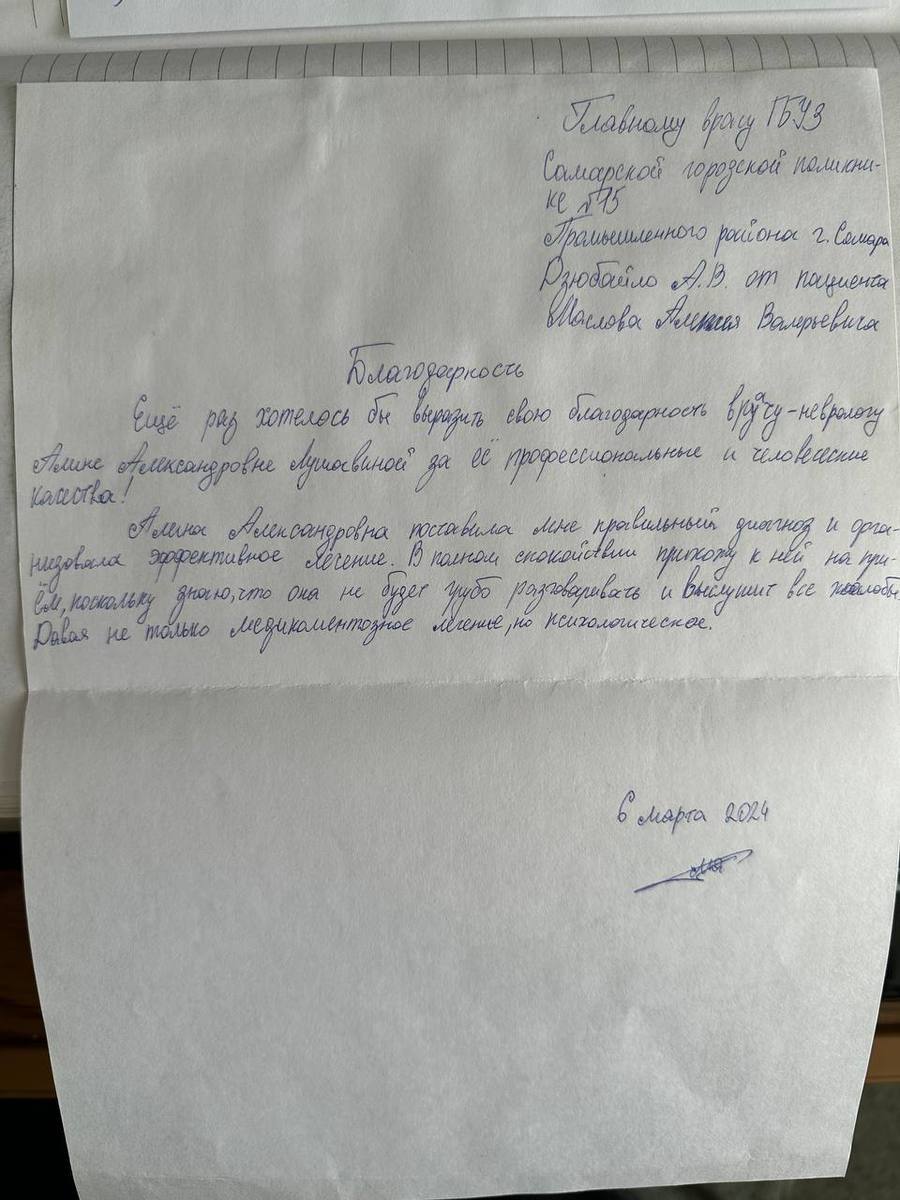 Главному врачу ГБУЗ
Самарской городской поликни-
ке №15
Промышленного района г. Самара
Дзюбайло А.В. от пациента
Маслова Алексея Валерьевича
Благодарность
Ещё раз хотелось бы выразить свою благодарность врачу-неврологу
Алине Александровне за её профессиональные и человеческие
качества!
Алина Александровна поставила мне правильный диагноз и орга-
низовала эффективное лечение. В полном спокойствии прихожу к ней на при-
ём, поскольку знаю, что она не будет грубо разговаривать и выслушит все жалобы
Давая не только медикоментозное леченье, но психологическое.
6 марта 2024